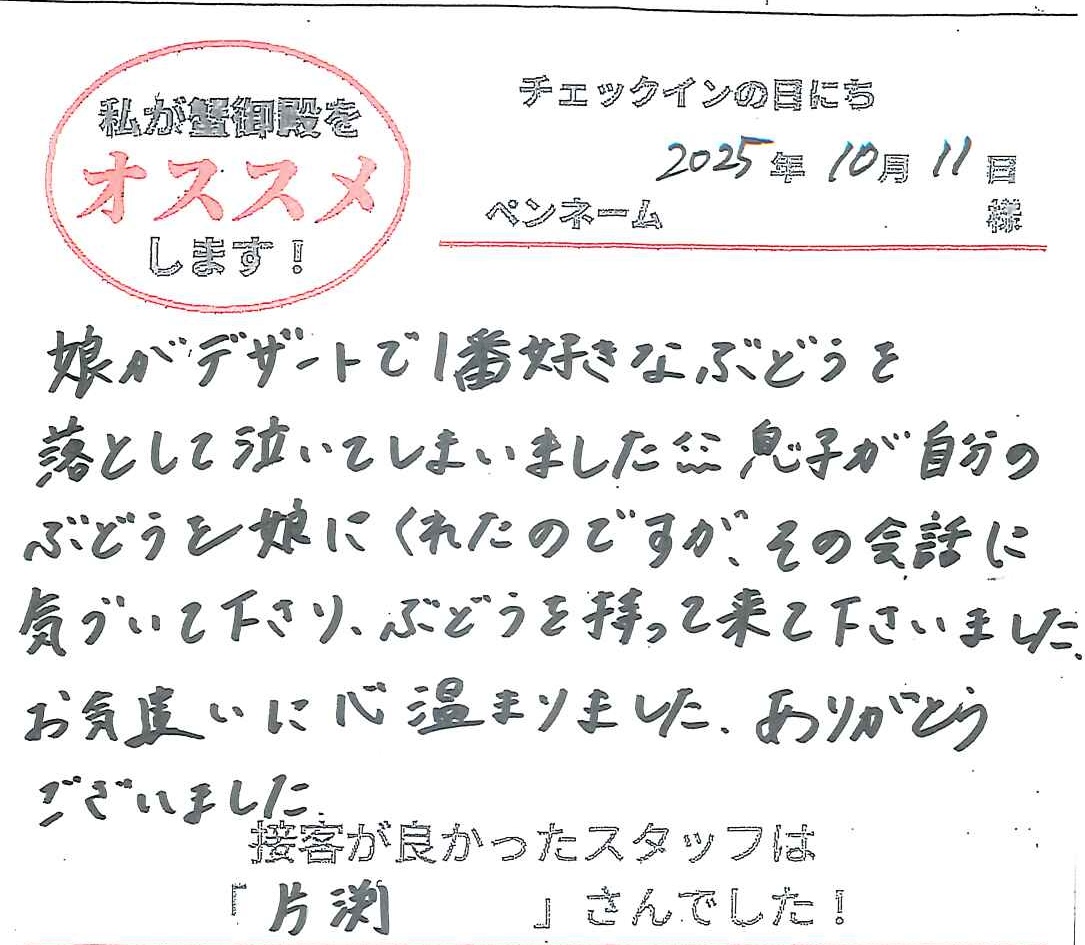 私が蟹御殿を
オススメ
します！
チェックインの日にち
2025年10月11日
ペンネーム 様
娘がデザートで1番好きなぶどうを
落として泣いてしまいました 息子が自分の
ぶどうを娘にくれたのですが、その会話に
気づいて下さり、ぶどうを持って来て下さいました。
お気遣いに心温まりました。ありがとう
ございました。
接客が良かったスタッフは
「片渕 」さんでした！